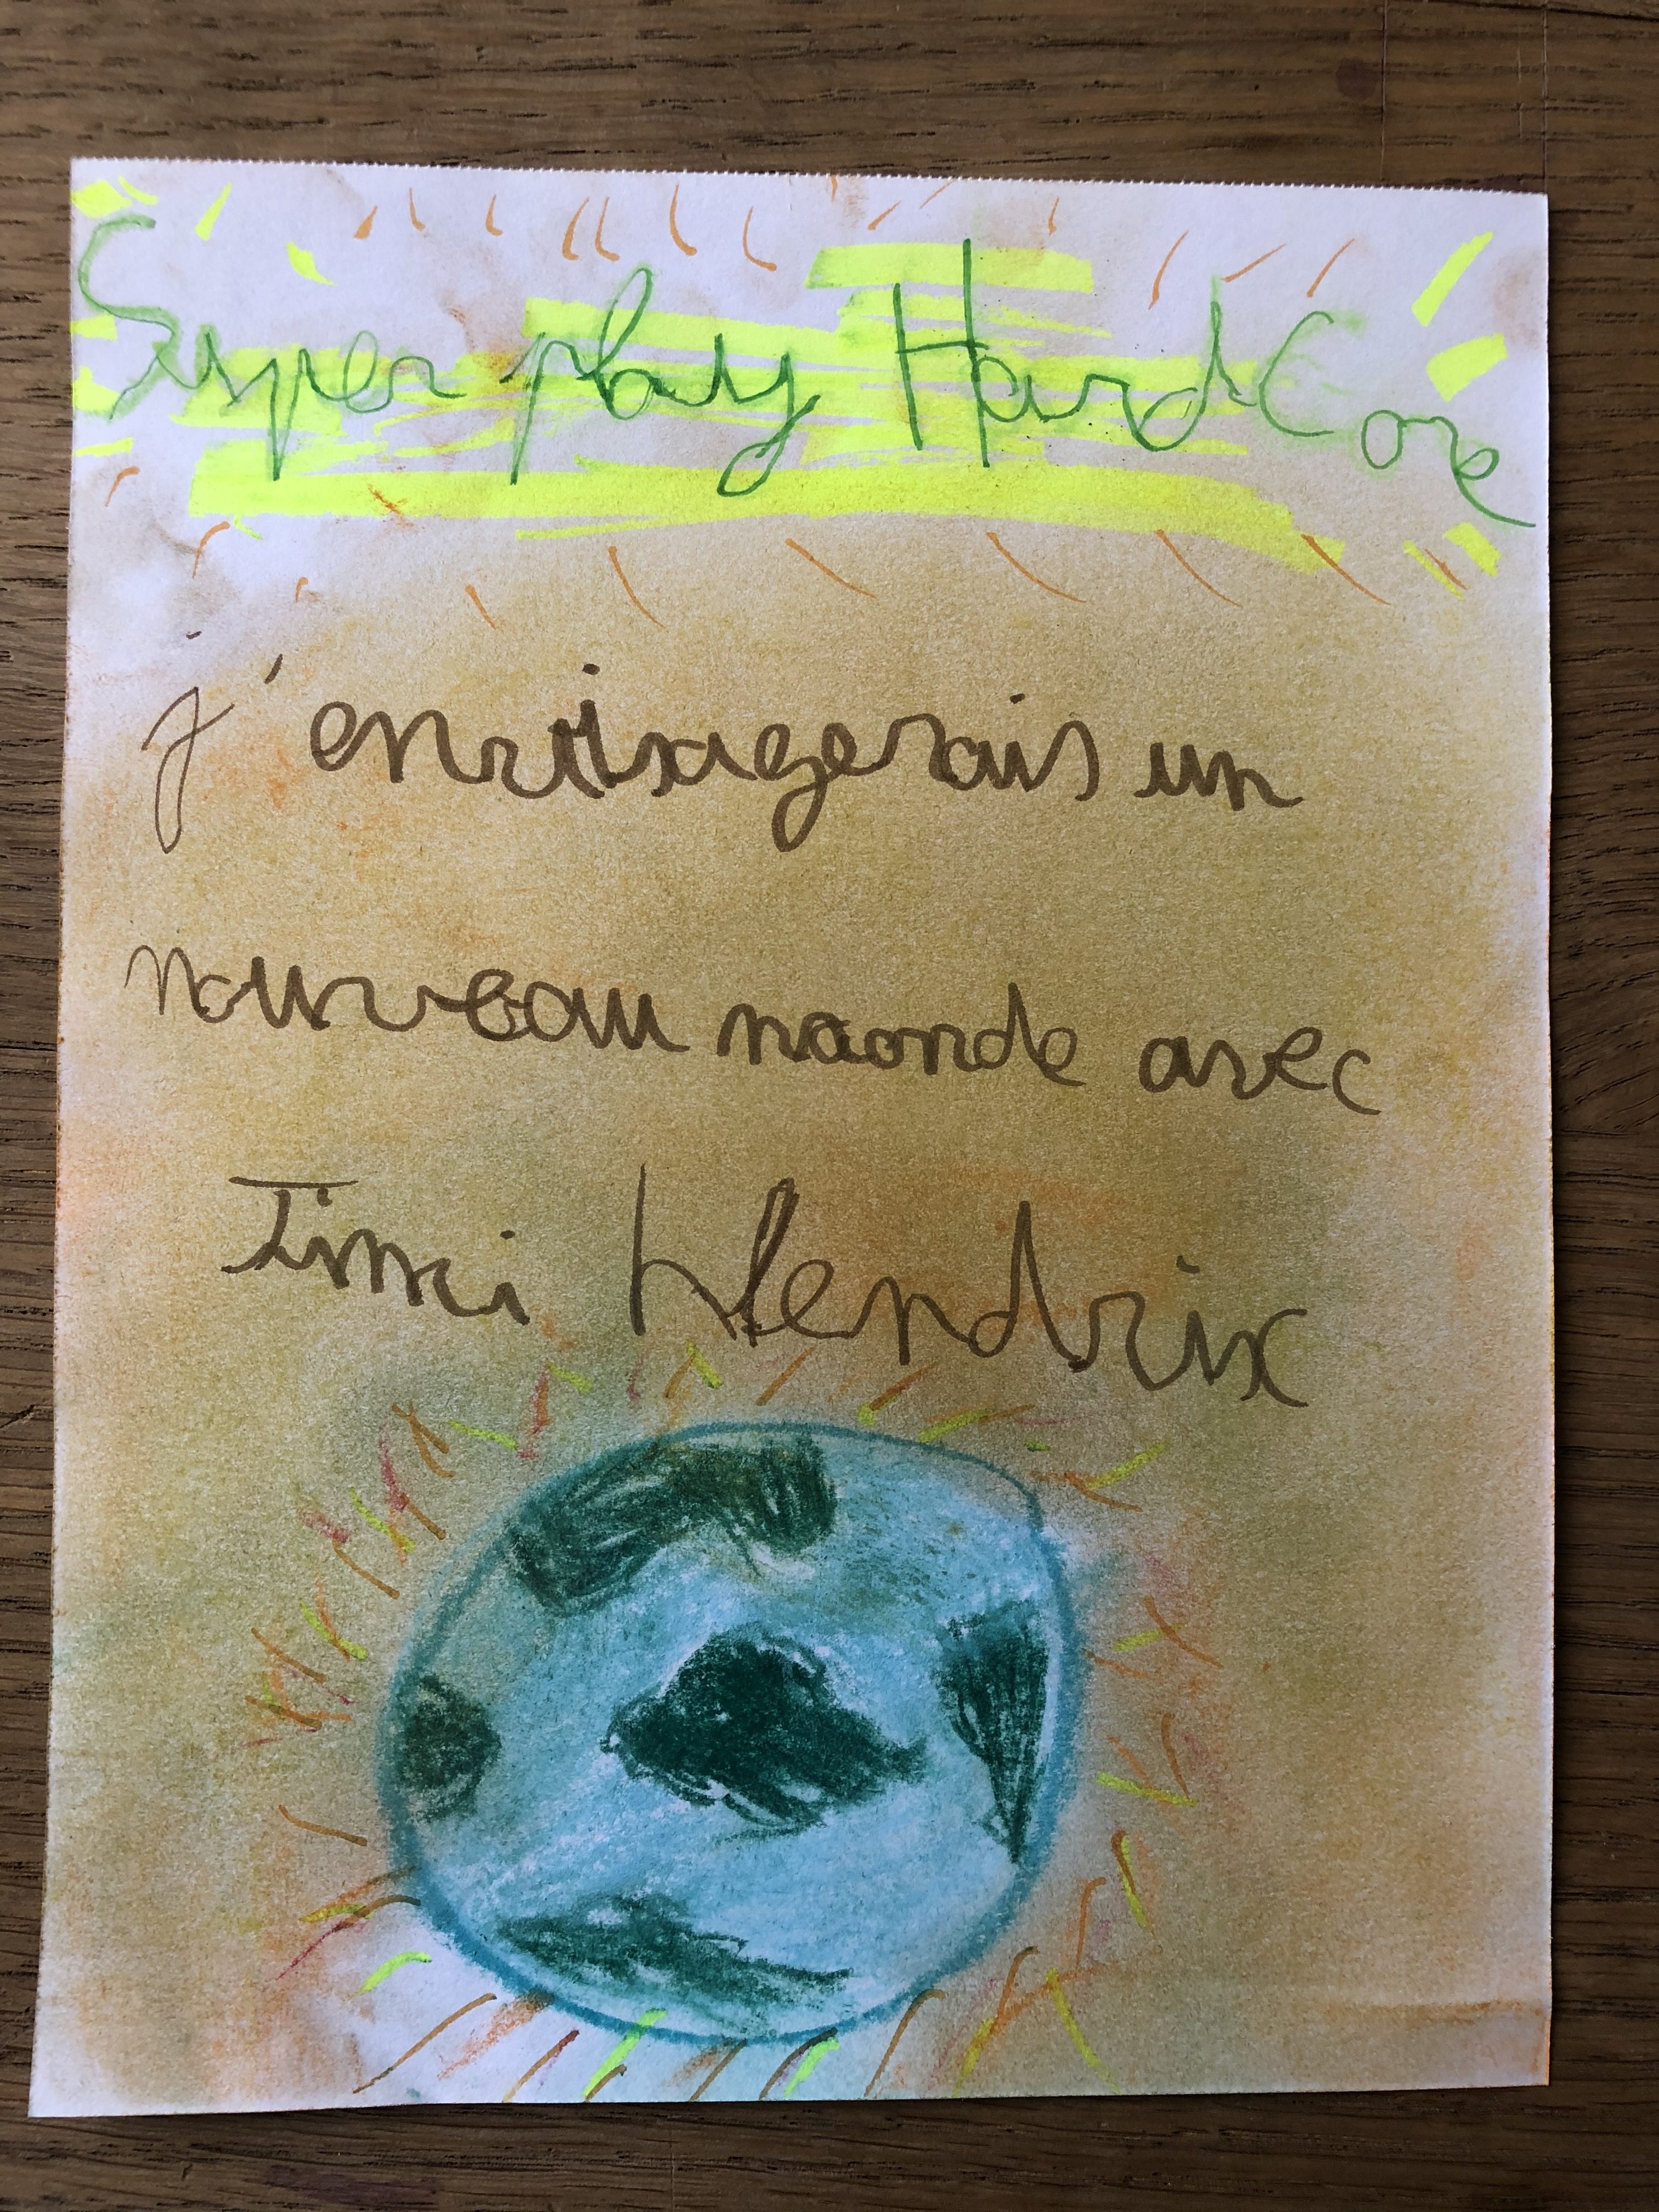 Super play HardCore
j'envisagerais un
nouveau monde avec
Jimi Hendrix